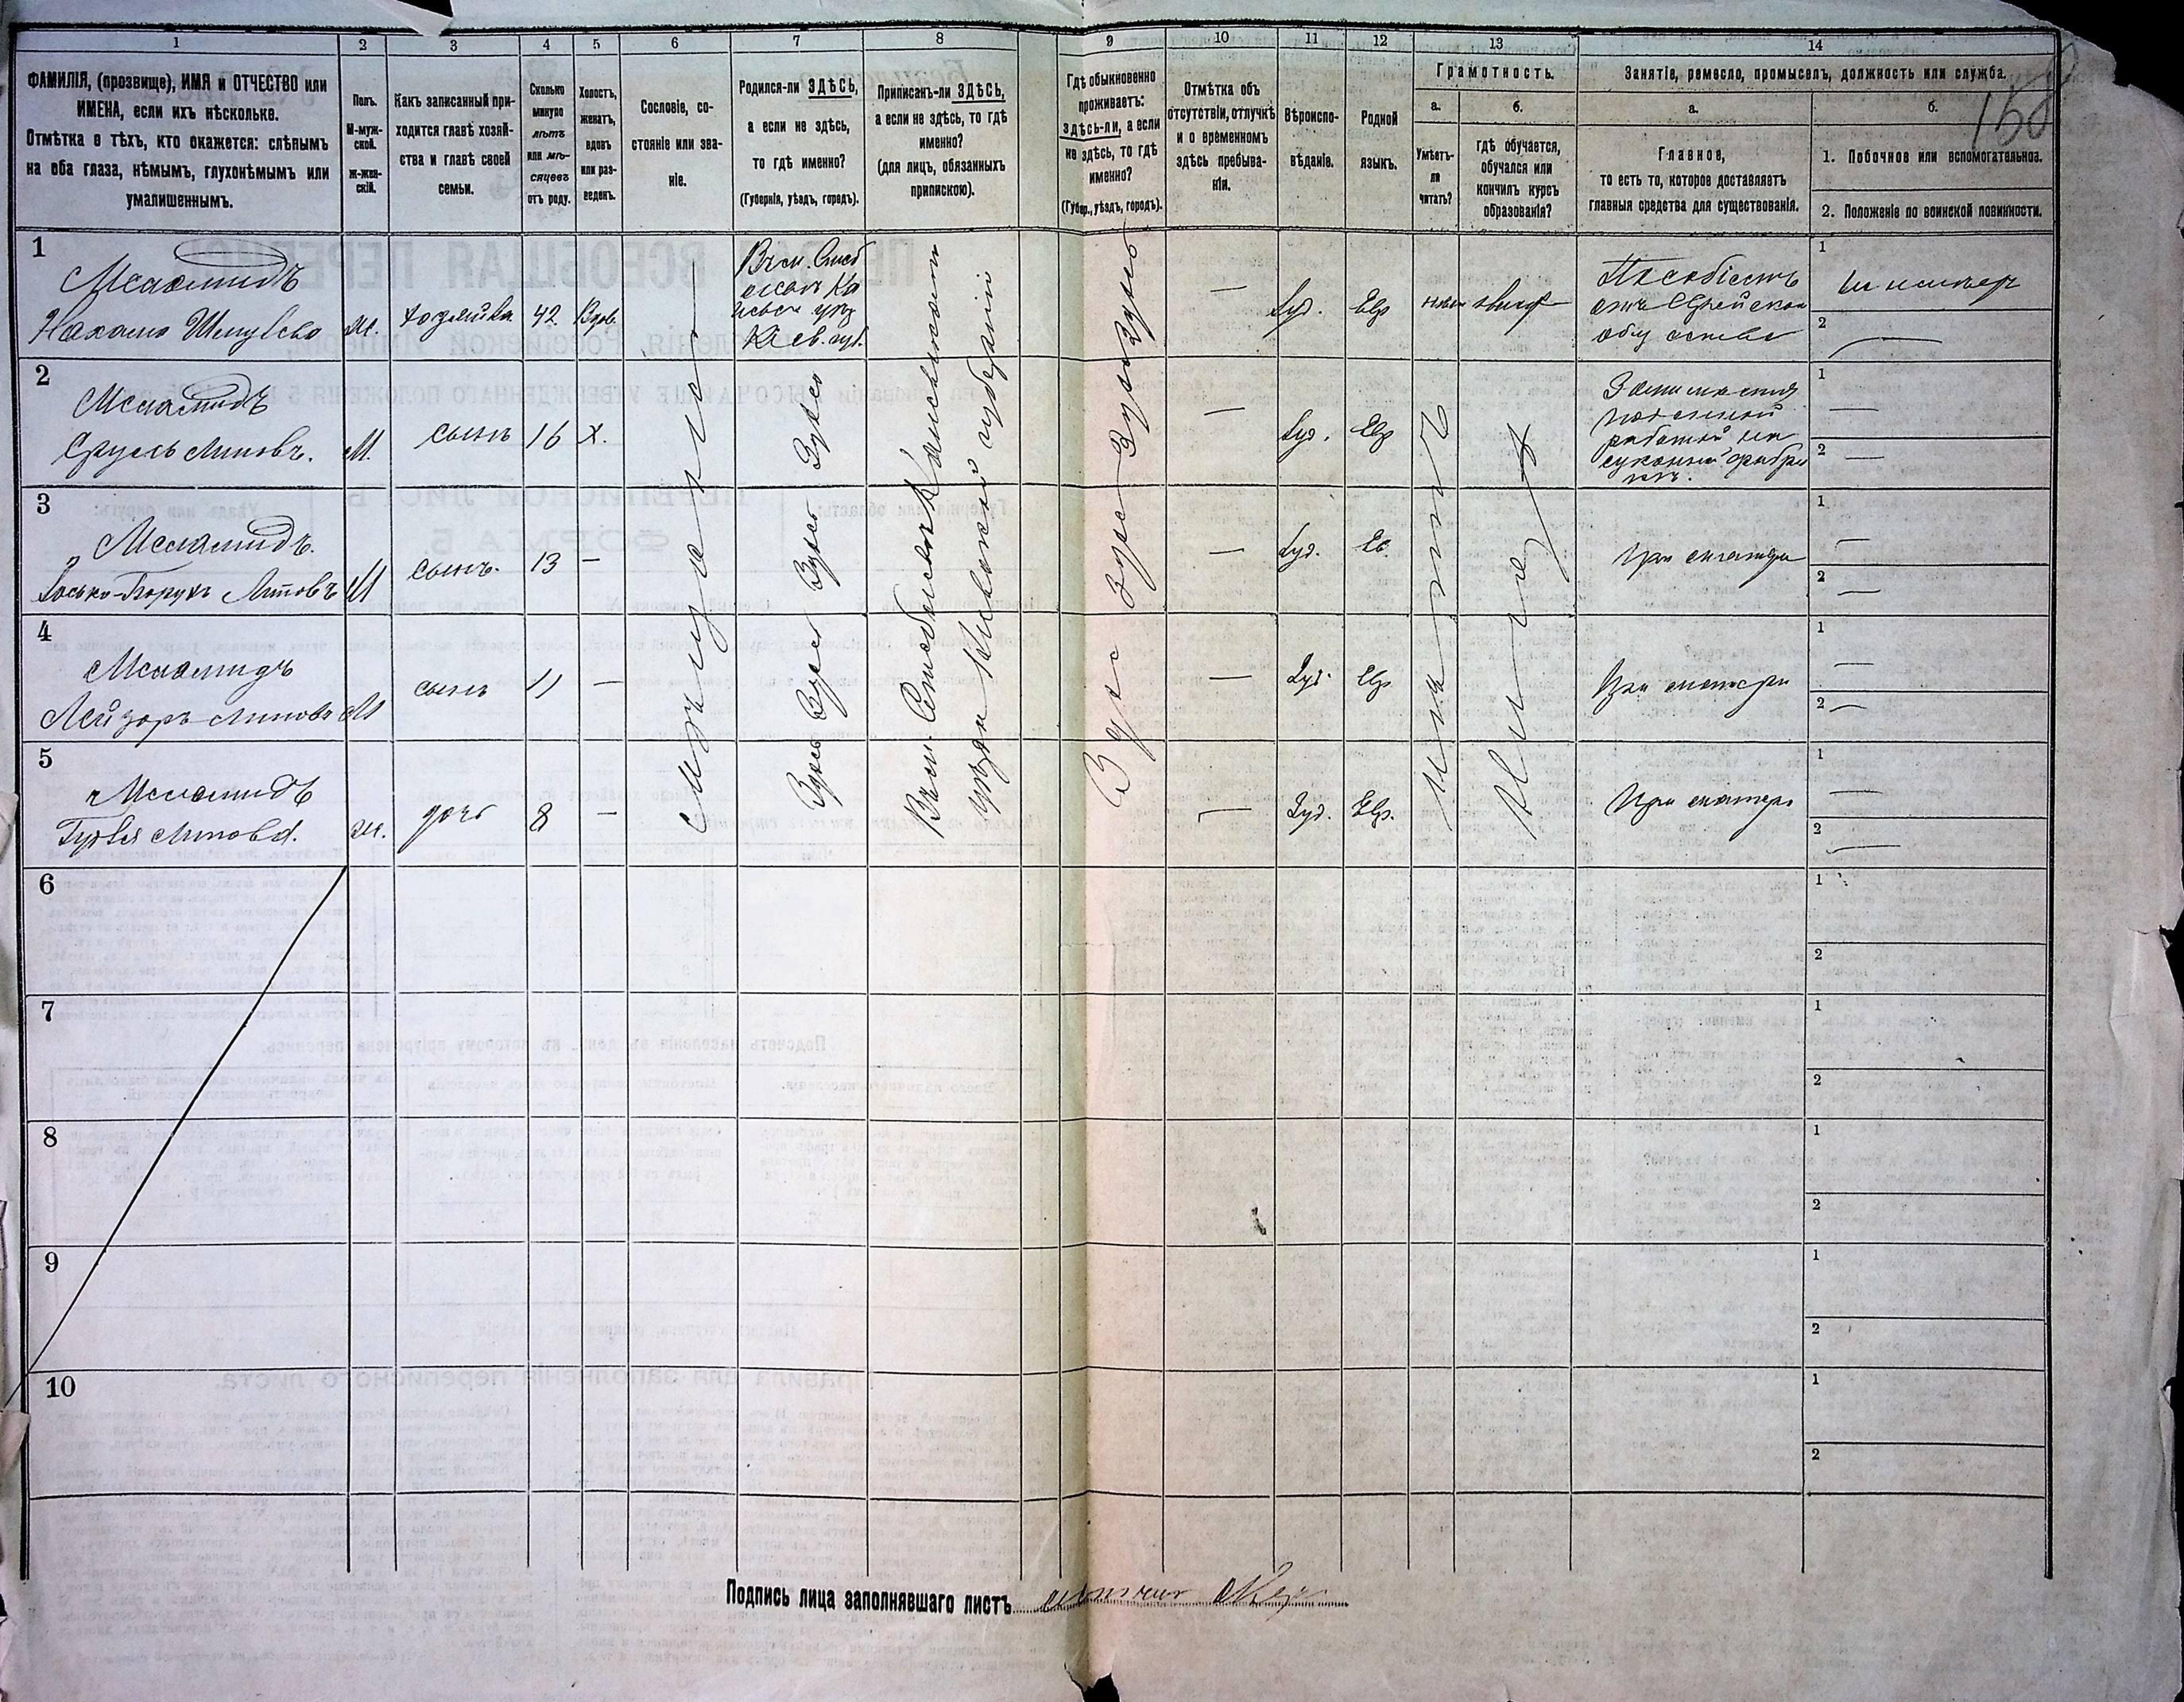 1 2 3 4 5 6 7 8 9 10 11 12 13 14
ФАМИЛІЯ, (прозвище), ИМЯ и ОТЧЕСТВО или
ИМЕНА, если ихъ нѣсколько.
Отмѣтка о тѣхъ, кто окажется: слѣпымъ
на оба глаза, нѣмымъ, глухонѣмымъ или
умалишеннымъ.
Полъ.
М-муж-
ской.
ж-жен-
скій.
Какъ записанный при-
ходится главѣ хозяй-
ства и главѣ своей
семьи.
Сколько
минуло
лѣтъ
или мѣ-
сяцевъ
отъ роду.
Холостъ,
женатъ,
вдовъ
или раз-
веденъ.
Сословіе, со-
стояніе или зва-
ніе.
Родился-ли ЗДѢСЬ,
а если не здѣсь,
то гдѣ именно?
(Губернія, уѣздъ, городъ).
Приписанъ-ли ЗДѢСЬ,
а если не здѣсь, то гдѣ
именно?
(для лицъ, обязанныхъ
припискою).
Гдѣ обыкновенно
проживаетъ:
здѣсь-ли, а если
не здѣсь, то гдѣ
именно?
(Губер., уѣздъ, городъ).
Отмѣтка объ
отсутствіи, отлучкѣ
и о временномъ
здѣсь пребыва-
ніи.
Вѣроиспо-
вѣданіе.
Родной
языкъ.
Грамотность.
а.
Умѣетъ-
ли
читать?
б.
гдѣ обучается,
обучался или
кончилъ курсъ
образованія?
Занятіе, ремесло, промыселъ, должность или служба.
а.
Главное,
то есть то, которое доставляетъ
главныя средства для существованія.
б.
1. Побочное или вспомогательное.
2. Положеніе по воинской повинности.
150
1
Меламидъ
Нахама Шмулева
ж.
хозяйка
42
Вдов.
—
Іуд.
Евр
Пособіемъ
отъ Еврейскаго
общества
1
2
2
Меламидъ
Сруль Липовъ.
М.
сынъ
16
Х.
Здѣсь
—
Іуд.
Евр
Занимается
поденной
работой на
суконной фабри
кѣ.
1 —
2 —
3
Меламидъ.
Іосько-Борухъ Липовъ
М
сынъ.
13
—
Здѣсь
—
Іуд.
Ев.
При матери
1 —
2 —
4
Меламидъ
Лейзоръ Липовъ
М
сынъ
11
—
Здѣсь
—
Іуд.
Евр
При матери
1 —
2 —
5
Меламидъ
Липова.
ж.
дочь
8
—
Здѣсь
—
Іуд.
Евр.
При матери
1 —
2 —
мѣщане
уѣзда Кіевской губерніи
Здѣсь Здѣсь Здѣсь Здѣсь
6
1
2
7
1
2
8
1
2
9
1
2
10
1
2
Подпись лица заполнявшаго листъ